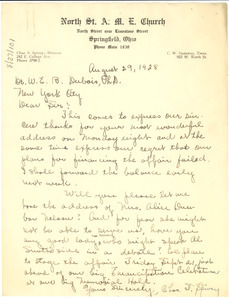 North St. A. M. E. Church
North Street near Limestone Street
Springfield, Ohio
Phone Main 1438
Chas. S. Spivey, Minister
C. W.
August 29, 1928
Dr. W. E. B. Dubois, Ph.D.
New York City
Dear Sir:
This comes to express our sin-
cere thanks for your most wonderful
address on Monday night and at the
same time express our regret that our
plans for financing the affair failed.
I shall forward the balance early
next week.
Will you please let me
have the address of Mrs. Alice Dun-
bar Nelson? And for fear she might
not be able to serve us, have you
any good lady who might speak
in a debate? We plan
to stage the affair Friday Sept 21 just
above of our big Emancipation Celebration
in our big Memorial Hall.
Yours Sincerely, Chas. S. Spivey